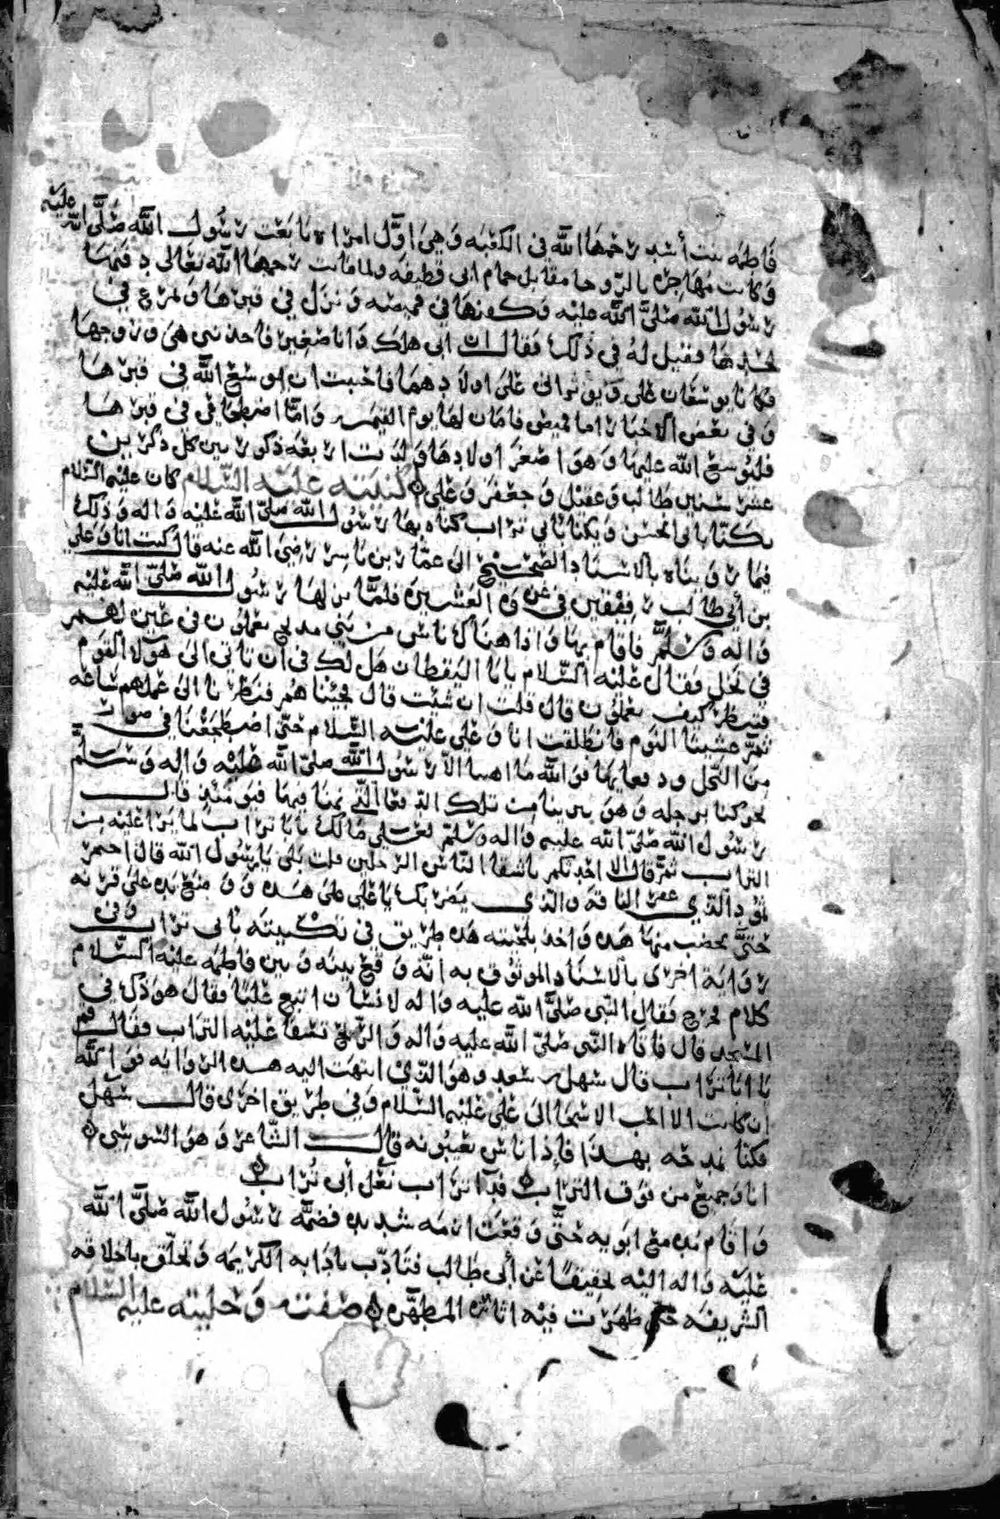 فاطمه بنت أسد رحمها الله في الكعبه وهي اول امراه بايعت رسول الله صلى الله عليه
وكانت مهاجره بالروحا مقابل حمام ابي قطيفه ولما ماتت رحمها الله تعالى دفنها
رسول الله صلى الله عليه وكفنها في قميصه ونزل في قبرها وتمرغ في
لحدها فقيل له في ذلك فقال ان ابي هلك وانا صغير فاخذتني هي وزوجها
فكانا يوسعان علي ويوثراني على اولادهما فاحببت ان يوسع الله في قبرها
وفي بعض الاخبار اما قميصي فامان لها يوم القيمه واما اضطجاعي في قبرها
فليوسع الله عليها وهو اصغر اولادها ولدت اربعه ذكور بين كل ذكرين
عشر سنين طالب وعقيل وجعفر وعلي كنيته عليه السلام كان عليه السلام
يكنا بابي الحسن ويكنا بابي تراب كناه بها رسول الله صلى الله عليه واله وذلك
فيما رويناه بالاسناد الصحيح الى عمار بن ياسر رضي الله عنه قال كنت انا وعلي
بن أبي طالب رفيقين في غزوه العشيره فلما نزلها رسول الله صلى الله عليه
واله وسلم فاقام بها واذا هناك ناس من بني مدلج يعملون في عين لهم
في نخل فقال عليه السلام يابا اليقظان هل لك في ان ناتي الى هولا القوم
فننظر كيف يعملون قال قلت ان شيت قال فجيناهم فنظرنا الى عملهم ساعه
ثم غشينا النوم فانطلقت انا وعلي عليه السلام حتى اضطجعنا في صور
من النخل ودقعا بها فو الله ما اهبنا الا رسول الله صلى الله عليه واله وسلم
يحركنا برجله وهو تربنا من تلك الدقعا التي نمنا فيها فيومئذ قال
رسول الله صلى الله عليه واله وسلم لعلي مالك يابا تراب لما يرا عليه من
التراب ثم قال الا اخبركم باشقا الناس الرجلين قلت بلى يا رسول الله قال احمر
ثمود الذي عقر الناقه والذي يضربك يا علي على هذه ووضع يده على قرنه
حتى يخضب منها هذه واخذ بلحيته هذه طريق في تكنيته بابي تراب وفي
روايه اخرى بالاسناد الموثوق به انه وقع بينه وبين فاطمه عليه السلام
كلام فخرج فقال النبي صلى الله عليه واله لانسان اتبع عليا فقال هو ذاك في
المسجد قال فاتاه النبي صلى الله عليه واله والريح تسفا عليه التراب فقال قم
يا ابا تراب قال سهل بن سعد وهو الذي انتهت اليه هذه الروايه فو الله
ان كانت الا احب الاسما الى علي عليه السلام وفي طريق اخرى قال سهل
فكنا نمدحه بهذا فإذا ناس يعيبونه قال الشاعر وهو السوسي
انا وجميع من فوق التراب فدا تراب نعل أبي تراب
واقام مع ابويه حتى وقعت ازمه شديده فضمه رسول الله صلى الله
عليه واله اليه تخفيفا عن أبي طالب فتادب بادابه الكريمه وتخلق باخلاقه
الشريفه حتى ظهرت فيه اثاره المطهره صفته وحليته عليه السلام